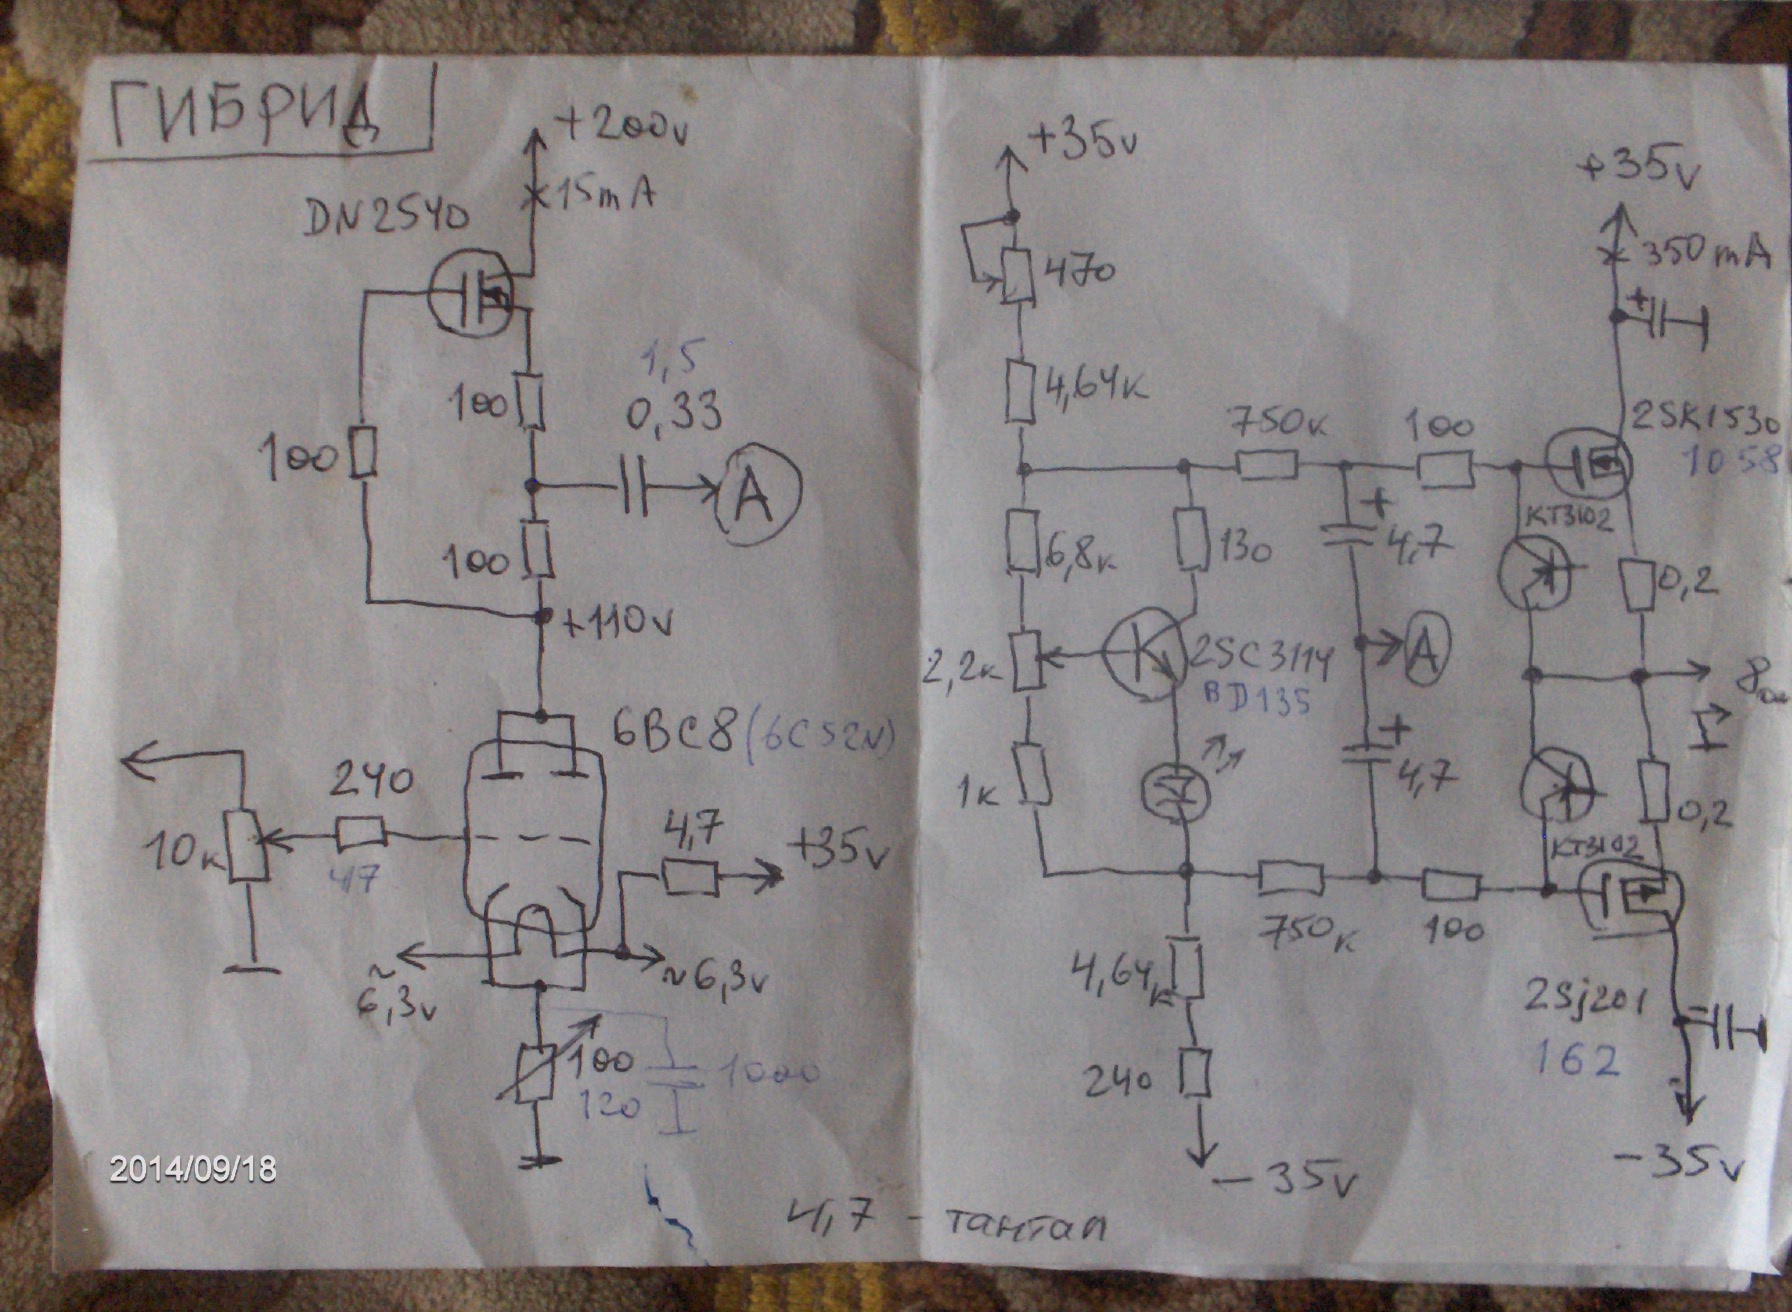 ГИБРИД
+200v
15mA
DN2540
100
100
1,5
0,33
A
100
+110v
6BC8 (6С52Н)
240
47
10к
4,7
+35v
~6,3v
~6,3v
100
120
1000
2014/09/18
4,7 - тантал
+35v
470
4,64к
750к
100
6,8к
130
4,7
2,2к
2SC3114
BD135
A
1к
4,7
750к
100
4,64к
240
-35v
+35v
350mA
+
2SK1530
1058
КТ3102
0,2
+
8ом
+
0,2
КТ3102
2Sj201
162
-
-35v